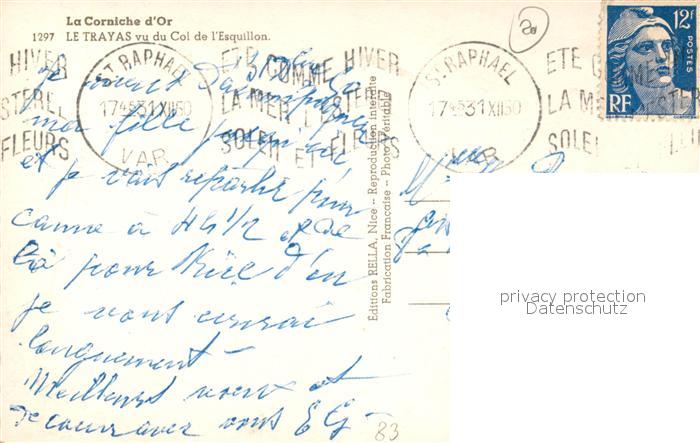 La Corniche d'Or
1297 LE TRAYAS vu du Col de l'Esquillon.
12F
POSTES
RF
HIVER
ESTEREL
FLEURS
ST RAPHAEL
17 45 31 XII 50
VAR
ETE COMME HIVER
LA MER L'ESTEREL
SOLEIL ET FLEURS
ST RAPHAEL
17 45 31 XII 50
VAR
ETE COMME
LA MER L'ESTEREL
SOLEIL
Je viens d'accompagner
ma fille jusqu'ici
et je vais repartir pour
Canne à 4h 1/2 et de
là pour Nice d'où
je vous écrirai
longuement -
Meilleurs voeux et
de coeur avec vous EG -
Editions RELLA, Nice — Reproduction interdite
Fabrication Française — Photo Véritable
privacy protection
Datenschutz
83